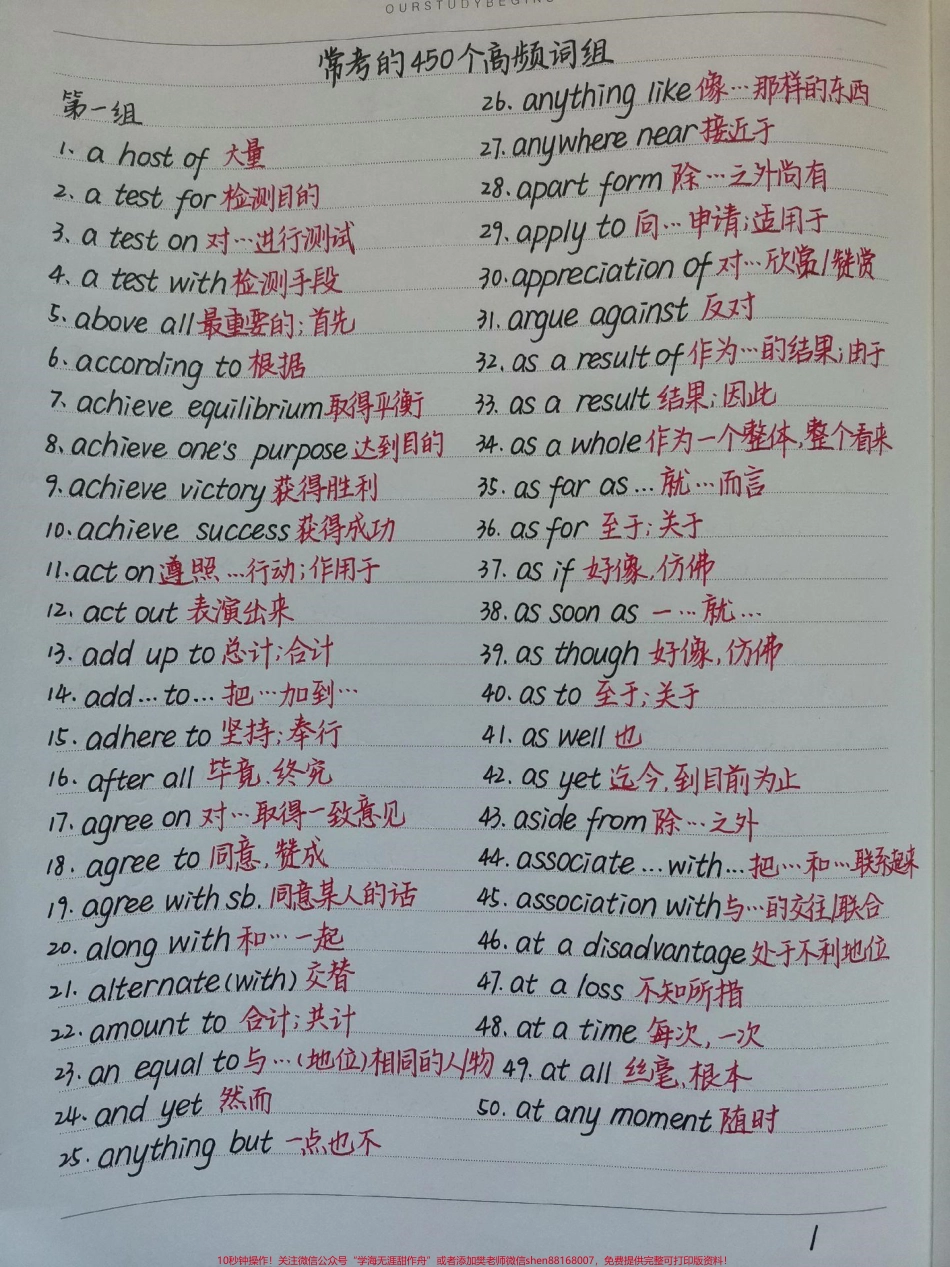 OURSTUDYBEGINS
常考的450个高频词组
第一组
1、a host of 大量
2. a test for 检测目的
3. a test on 对…进行测试
4. a test with 检测手段
5. above all 最重要的;首先
6. according to 根据
7. achieve equilibrium 取得平衡
8. achieve one's purpose 达到目的
9. achieve victory 获得胜利
10. achieve success 获得成功
11. act on 遵照…行动;作用于
12. act out 表演出来
13. add up to 总计;合计
14. add…to… 把…加到…
15. adhere to 坚持;奉行
16. after all 毕竟、终究
17. agree on 对…取得一致意见
18. agree to 同意,赞成
19. agree with sb. 同意某人的话
20. along with 和…一起
21. alternate(with) 交替
22. amount to 合计;共计
23. an equal to 与…(地位)相同的人/物
24. and yet 然而
25. anything but 一点也不
26. anything like 像…那样的东西
27. anywhere near 接近于
28. apart form 除…之外尚有
29. apply to 向…申请;适用于
30. appreciation of 对…欣赏/赞赏
31. argue against 反对
32. as a result of 作为…的结果;由于
33. as a result 结果;因此
34. as a whole 作为一个整体,整个看来
35. as far as… 就…而言
36. as for 至于;关于
37. as if 好像,仿佛
38. as soon as 一…就…
39. as though 好像,仿佛
40. as to 至于;关于
41. as well 也
42. as yet 迄今,到目前为止
43. aside from 除…之外
44. associate…with… 把…和…联系起来
45. association with 与…的交往/联合
46. at a disadvantage 处于不利地位
47. at a loss 不知所措
48. at a time 每次,一次
49. at all 丝毫、根本
50. at any moment 随时
1
10秒钟操作!关注微信公众号“学海无涯甜作舟”或者添加樊老师微信shen88168007,免费提供完整可打印版资料!